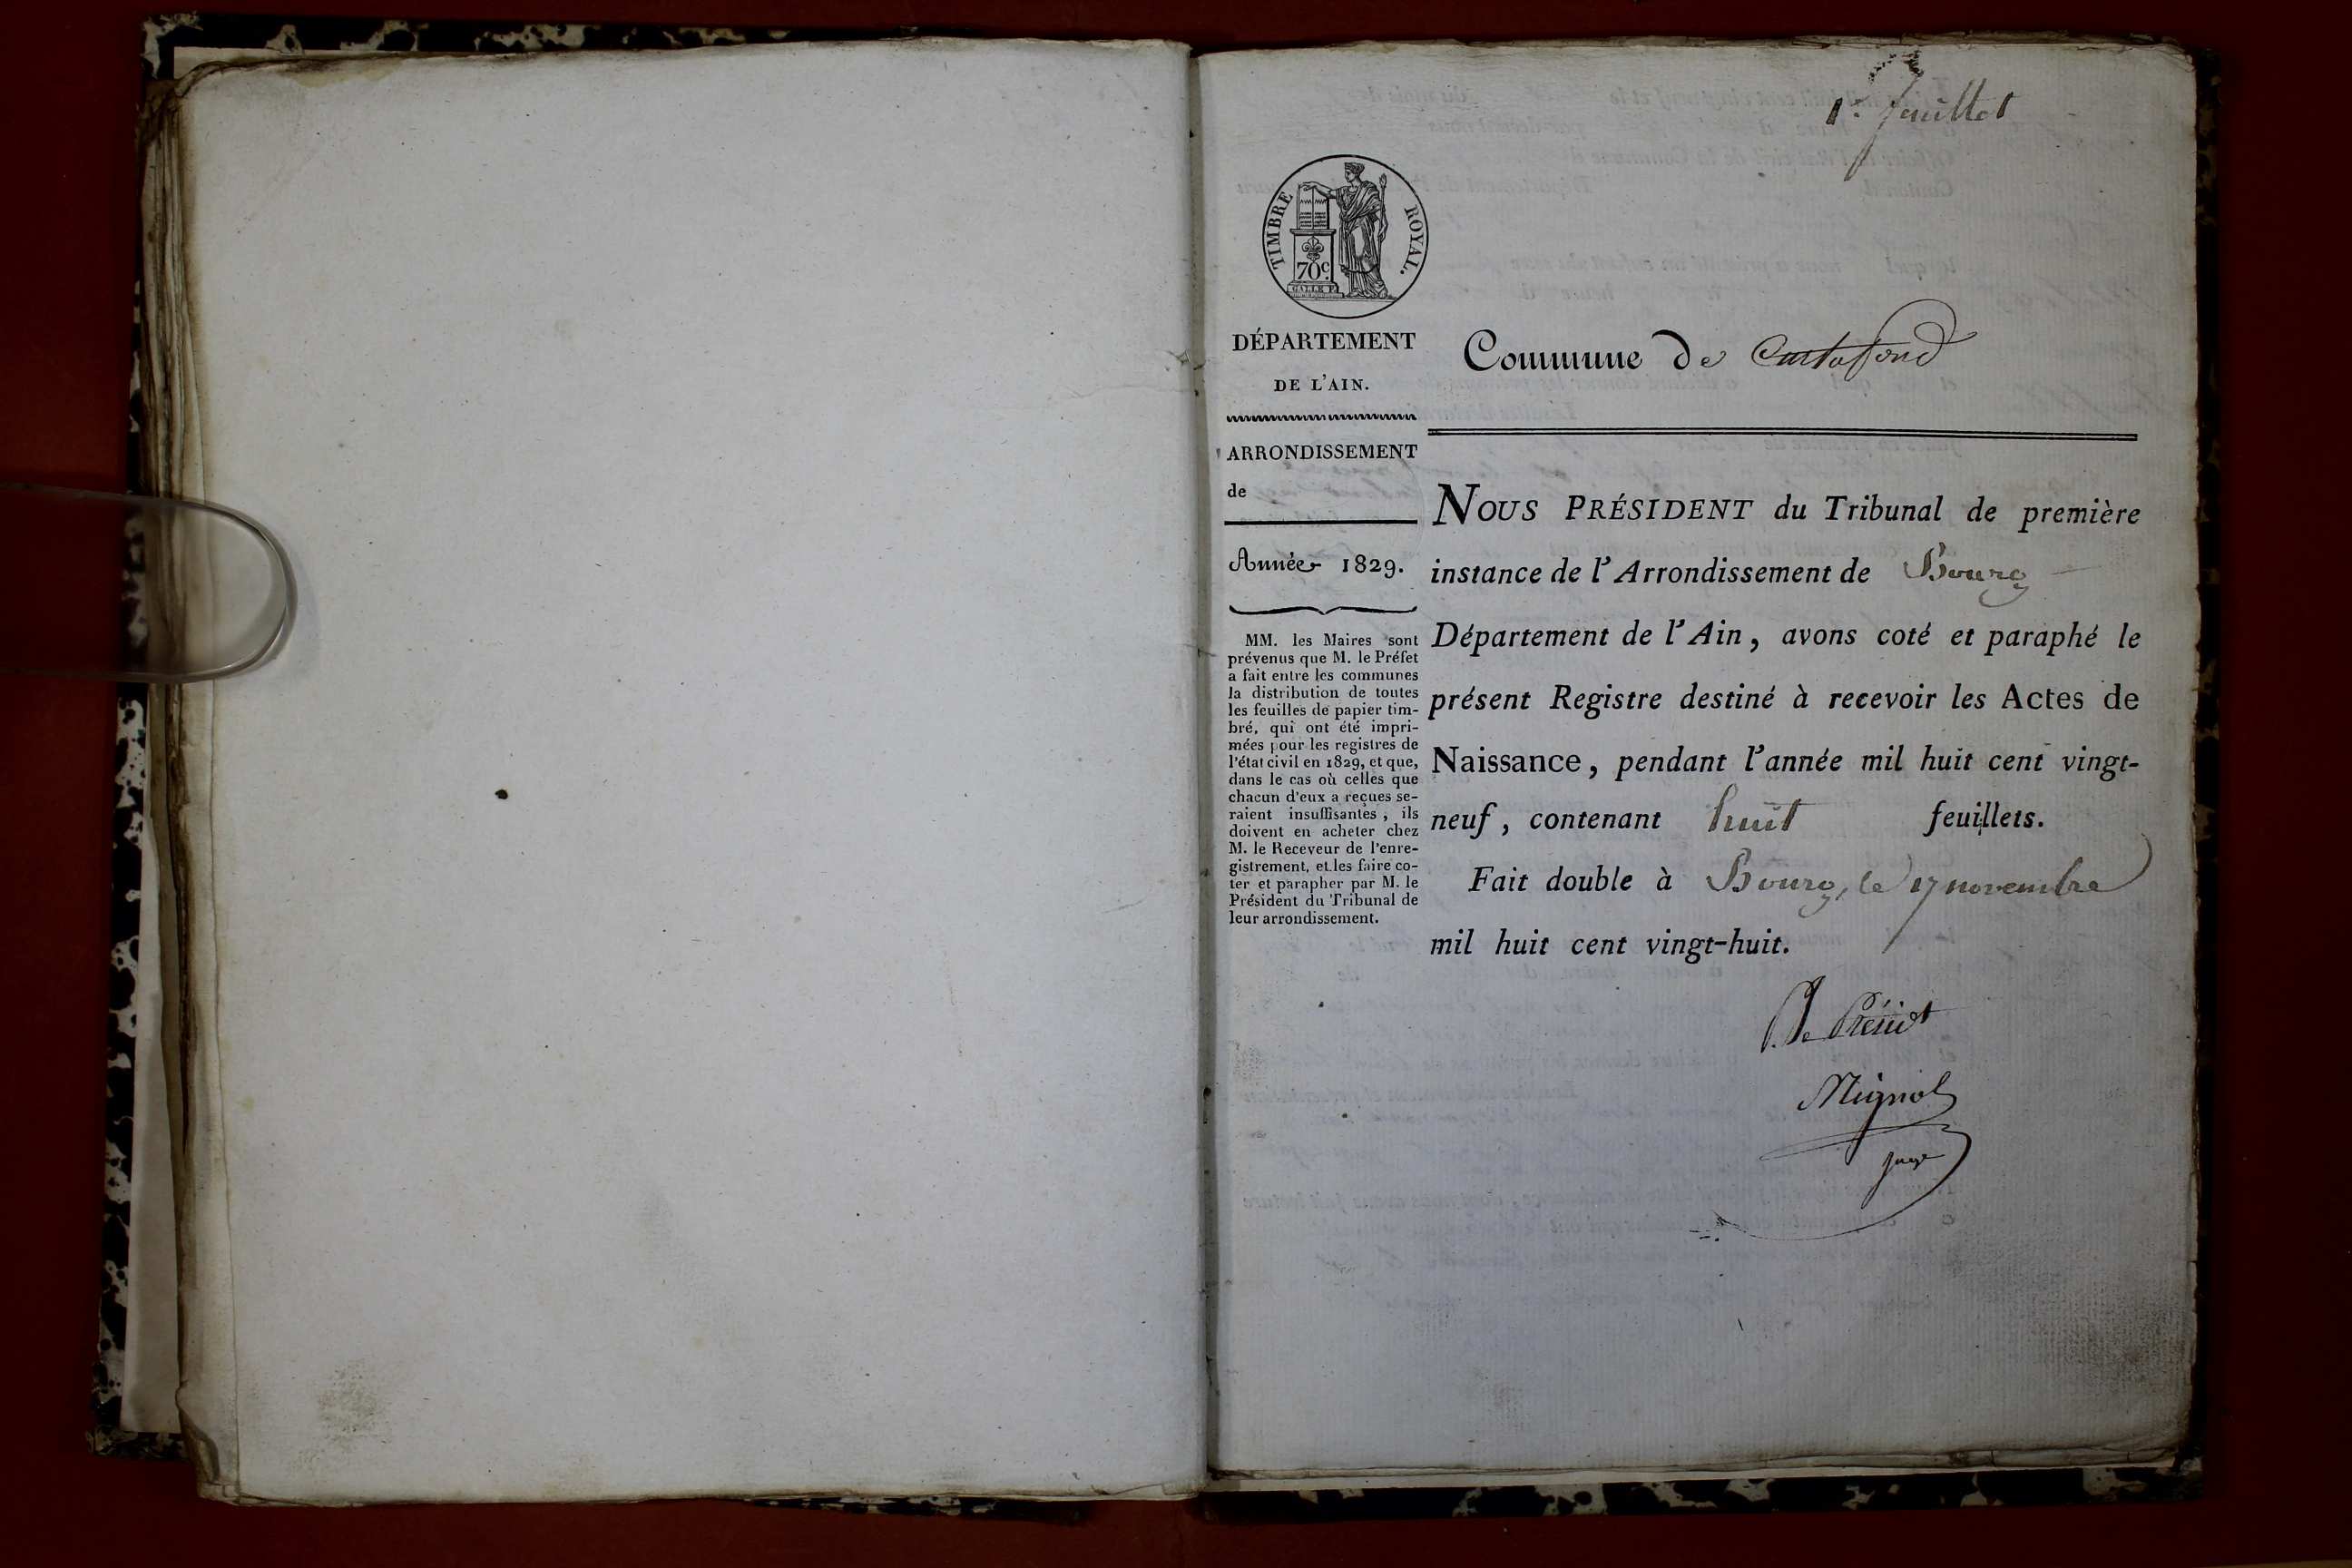 1er. feuillet
TIMBRE ROYAL.
70c.
GALLE F.
DÉPARTEMENT
DE L'AIN.
ARRONDISSEMENT
de
Année 1829.
MM. les Maires sont
prévenus que M. le Préfet
a fait entre les communes
la distribution de toutes
les feuilles de papier tim-
bré, qui ont été impri-
mées pour les registres de
l'état civil en 1829, et que,
dans le cas où celles que
chacun d'eux a reçues se-
raient insuffisantes, ils
doivent en acheter chez
M. le Receveur de l'enre-
gistrement, et les faire co-
ter et parapher par M. le
Président du Tribunal de
leur arrondissement.
Commune de Curtafond
NOUS PRÉSIDENT du Tribunal de première
instance de l'Arrondissement de Bourg
Département de l'Ain, avons coté et paraphé le
présent Registre destiné à recevoir les Actes de
Naissance, pendant l'année mil huit cent vingt-
neuf, contenant huit feuillets.
Fait double à Bourg, le 17 novembre
mil huit cent vingt-huit.
Mignot
juge